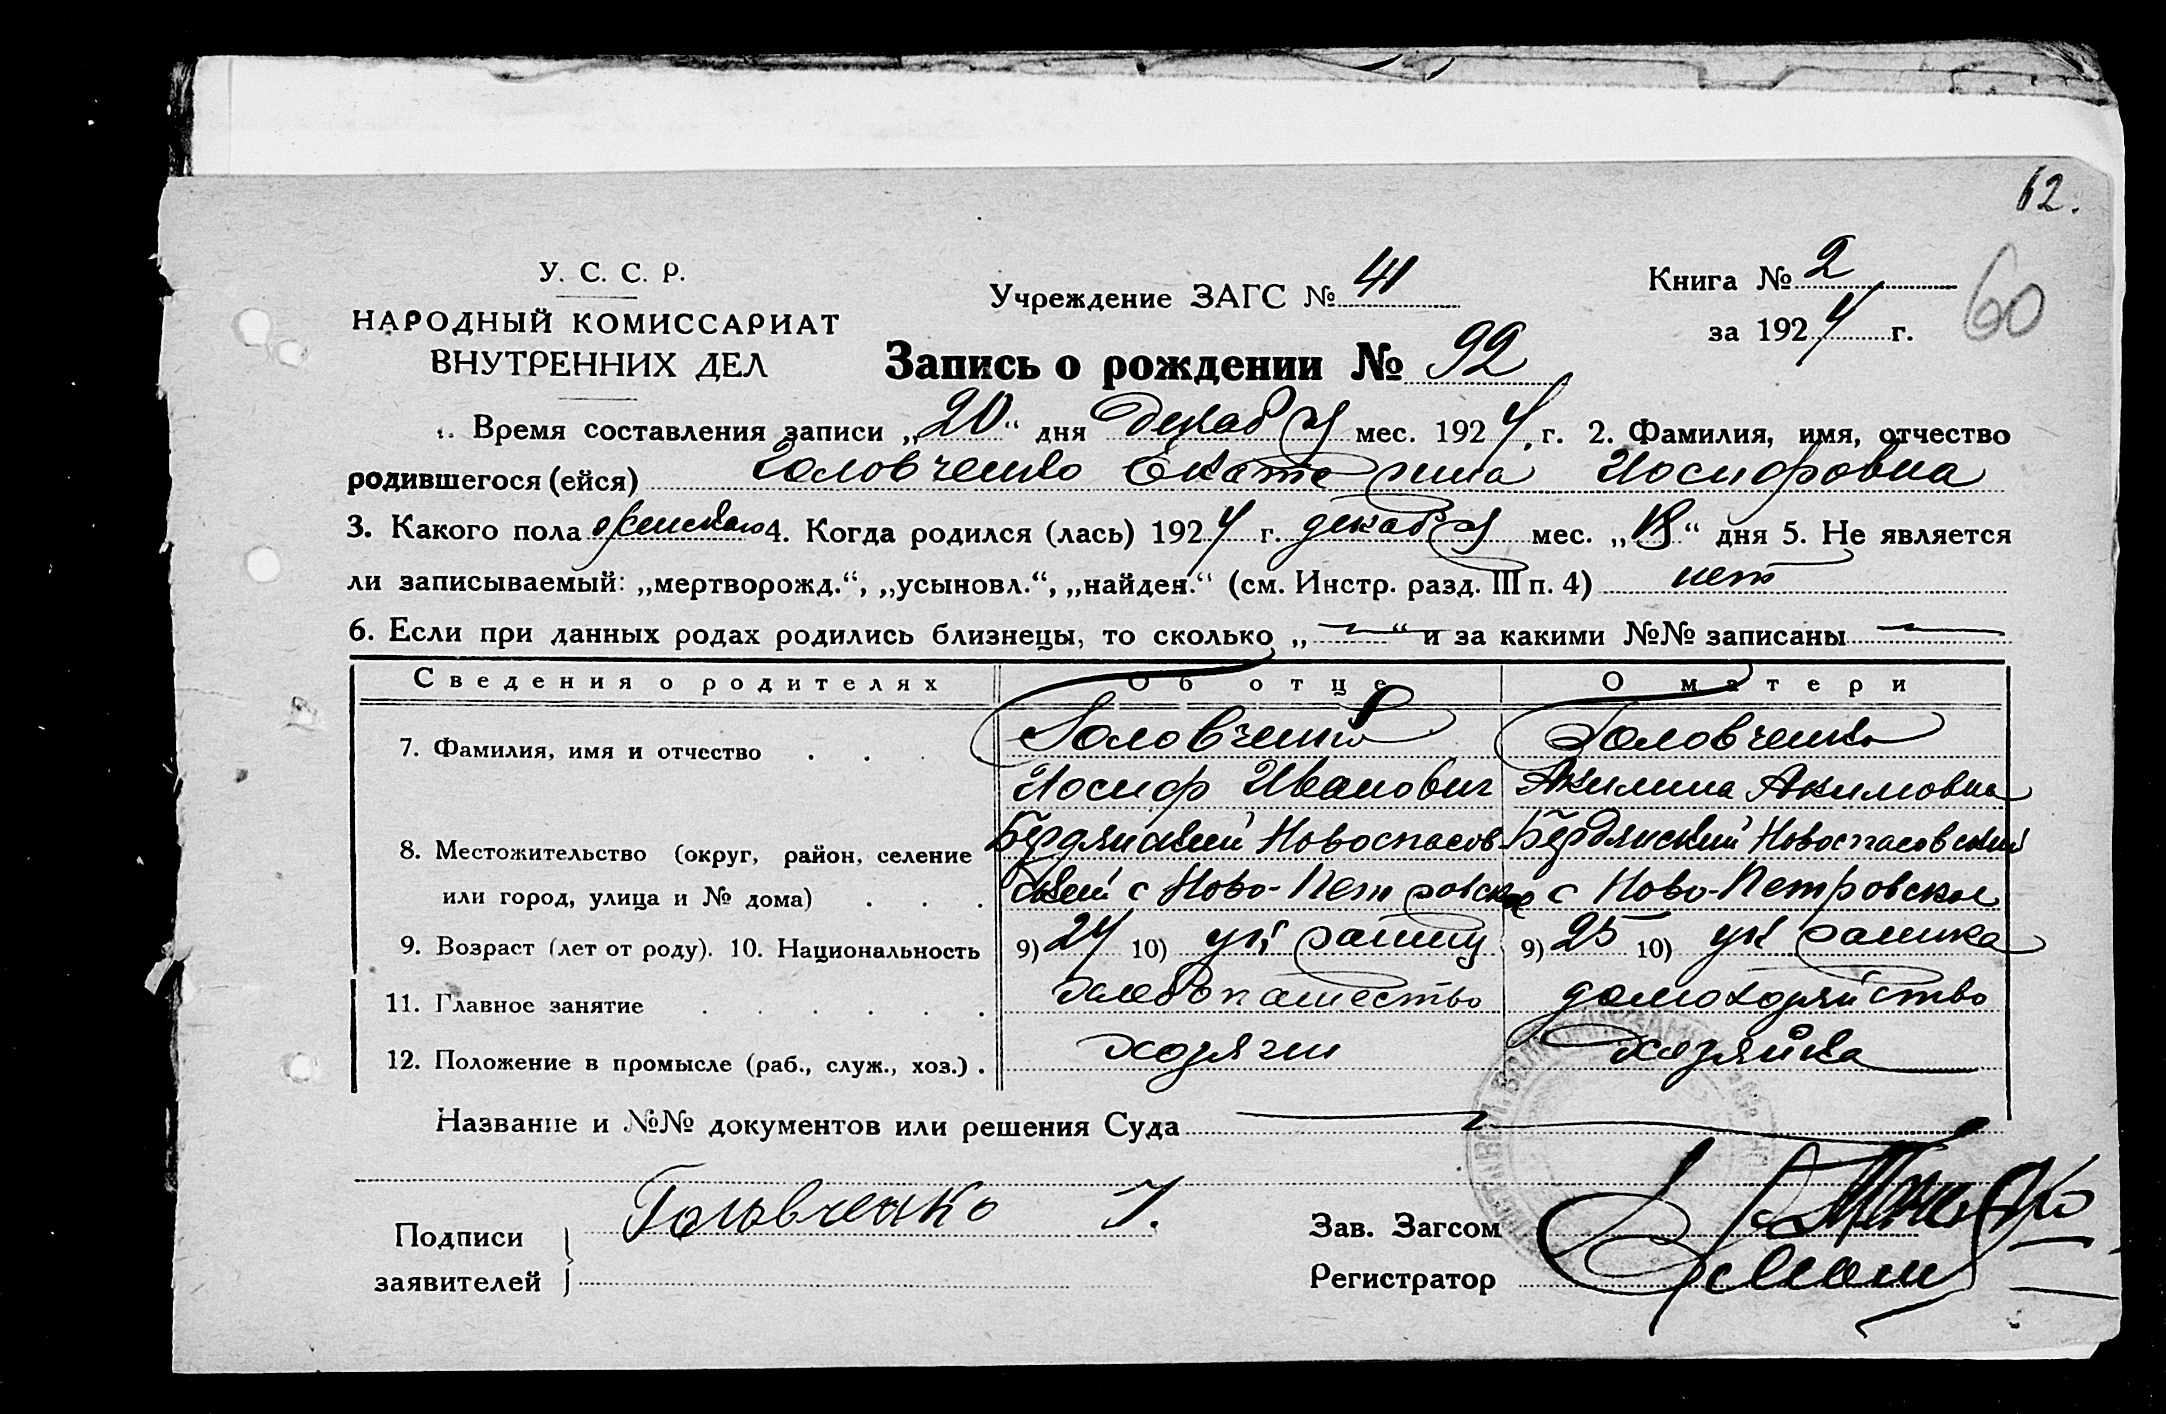 62.
60
У. С. С. Р.
НАРОДНЫЙ КОМИССАРИАТ
ВНУТРЕННИХ ДЕЛ
Учреждение ЗАГС № 41
Книга № 2
за 1924 г.
Запись о рождении № 92
1. Время составления записи „20“ дня декабря мес. 1924 г. 2. Фамилия, имя, отчество
родившегося (ейся) Головченко Екатерина Иосифовна
3. Какого пола женского 4. Когда родился (лась) 1924 г. декабря мес. „18“ дня 5. Не является
ли записываемый: „мертворожд.“, „усыновл.“, „найден.“ (см. Инстр. разд. III п. 4) нет
6. Если при данных родах родились близнецы, то сколько „—“ и за какими №№ записаны —
Сведения о родителях Об отце О матери
7. Фамилия, имя и отчество Головченко Головченко
Иосиф Иванович Акилина Акимовна
8. Местожительство (округ, район, селение Бердянский Новоспасов- Бердянский Новоспасовский
или город, улица и № дома) ский с Ново-Петровске с Ново-Петровске
9. Возраст (лет от роду). 10. Национальность 9) 24 10) украинц 9) 25 10) украинка
11. Главное занятие хлебопашество домохозяйство
12. Положение в промысле (раб., служ., хоз.) хозяин хозяйка
Название и №№ документов или решения Суда
Подписи заявителей Головченко И.
Зав. Загсом
Регистратор